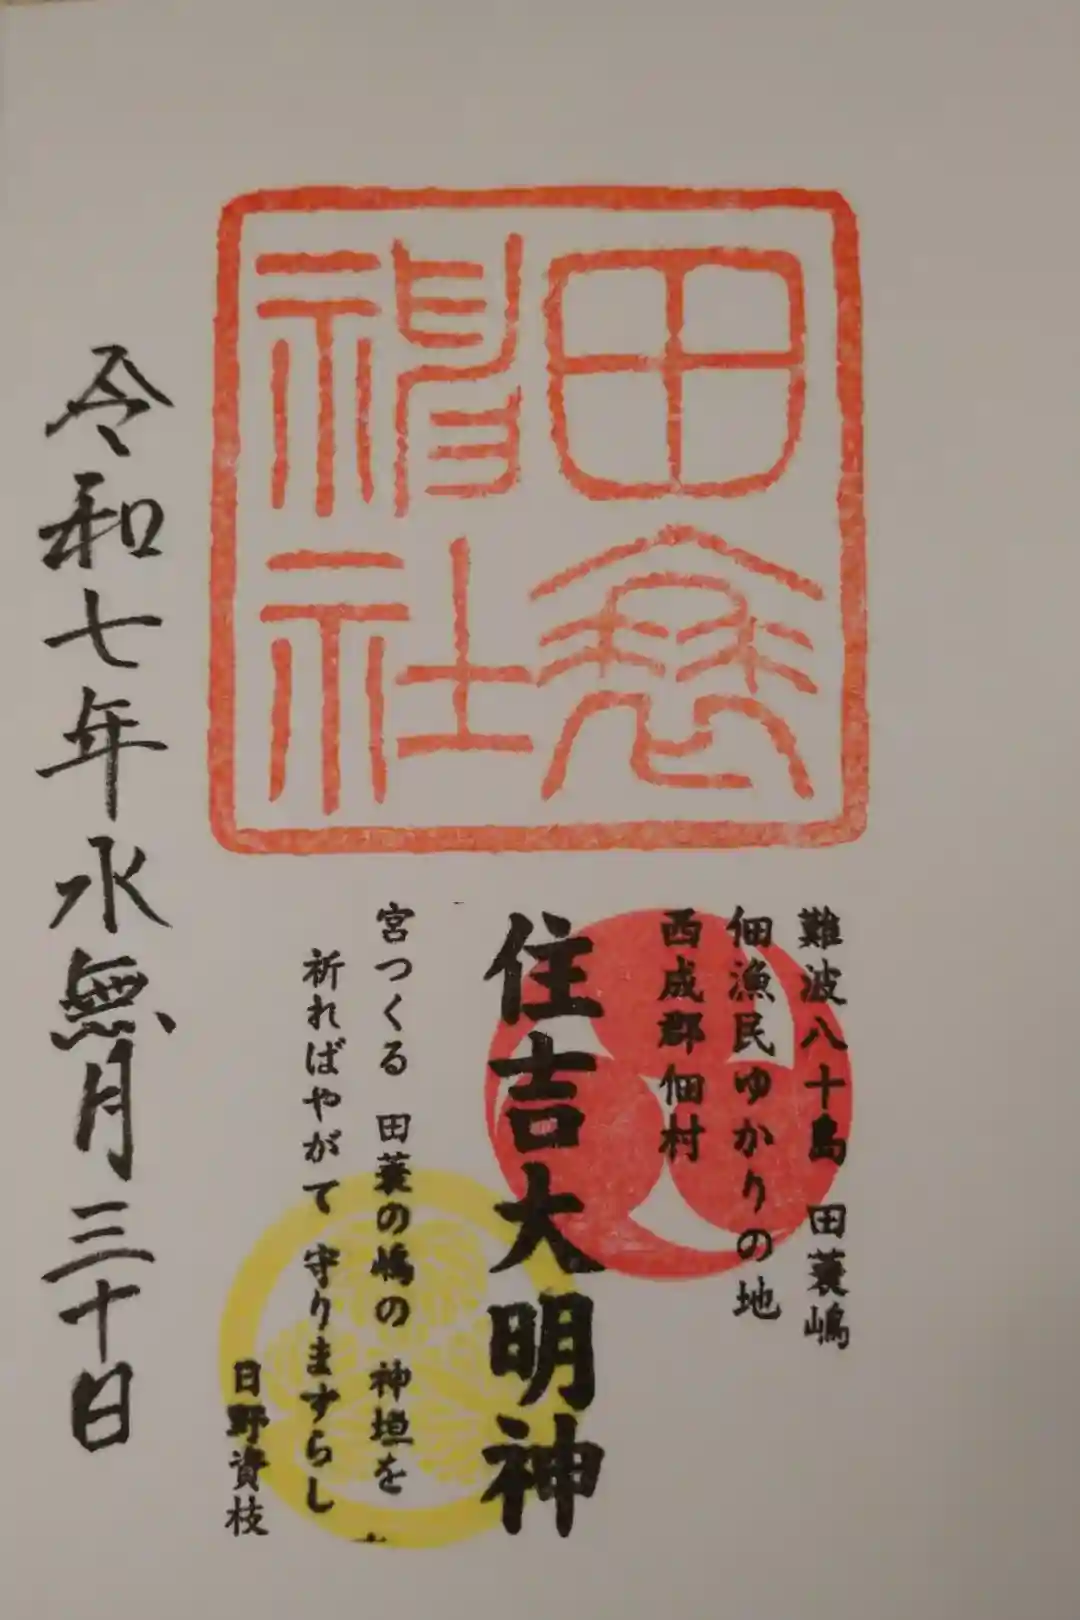 田蓑
神社
難波八十島 田蓑嶋
佃漁民ゆかりの地
西成郡佃村
住吉大明神
宮つくる 田蓑の嶋の 神垣を
祈ればやがて 守りますらし
日野資枝
令和七年水無月三十日